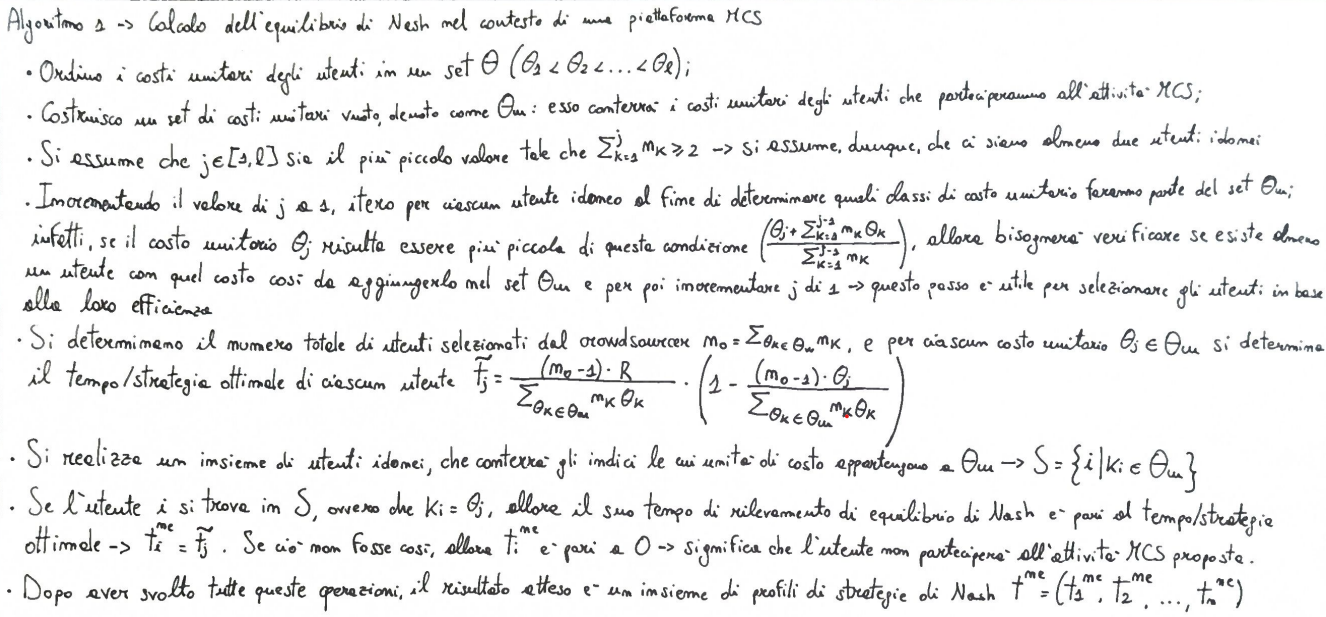 Algoritmo 1 -> Calcolo dell'equilibrio di Nash nel contesto di una piattaforma MCS
• Ordino i costi unitari degli utenti in un set Θ (Θ₁ < Θ₂ < ... < Θℓ);
• Costruisco un set di costi unitari vuoto, denoto come Θᵤₙ: esso conterrà i costi unitari degli utenti che parteciperanno all'attività MCS;
• Si assume che j∈[1,ℓ] sia il più piccolo valore tale che Σ_{k=1}^{j} m_k ⩾ 2 -> si assume, dunque, che ci siano almeno due utenti idonei
• Incrementando il valore di j a 1, itero per ciascun utente idoneo al fine di determinare quali classi di costo unitario faranno parte del set Θᵤₙ;
infatti, se il costo unitario Θ_j risulta essere più piccola di questa condizione ((Θ_j + Σ_{k=1}^{j-1} m_k Θ_k) / (Σ_{k=1}^{j-1} m_k)), allora bisognerà verificare se esiste almeno
un utente con quel costo così da aggiungerlo nel set Θᵤₙ e per poi incrementare j di 1 -> questo passo è utile per selezionare gli utenti in base
alla loro efficienza
• Si determinano il numero totale di utenti selezionati dal crowdsourcer m₀ = Σ_{Θ_k∈Θ_w} m_k, e per ciascun costo unitario Θ_j ∈ Θᵤₙ si determina
il tempo/strategia ottimale di ciascun utente t̃_j = ((m₀-1)·R) / (Σ_{Θ_k∈Θᵤₙ} m_k Θ_k) · (1 - ((m₀-1)·Θ_j) / (Σ_{Θ_k∈Θᵤₙ} m_k Θ_k))
• Si realizza un insieme di utenti idonei, che conterrà gli indici le cui unità di costo appartengono a Θᵤₙ -> S = {i|k_i ∈ Θᵤₙ}
• Se l'utente i si trova in S, ovvero che k_i = Θ_j, allora il suo tempo di rilevamento di equilibrio di Nash è pari al tempo/strategia
ottimale -> t_i^{ne} = t̃_j. Se ciò non fosse così, allora t_i^{ne} è pari a 0 -> significa che l'utente non parteciperà all'attività MCS proposta.
• Dopo aver svolto tutte queste operazioni, il risultato atteso è un insieme di profili di strategie di Nash t^{ne} = (t₁^{ne}, t₂^{ne}, ..., t_n^{ne})